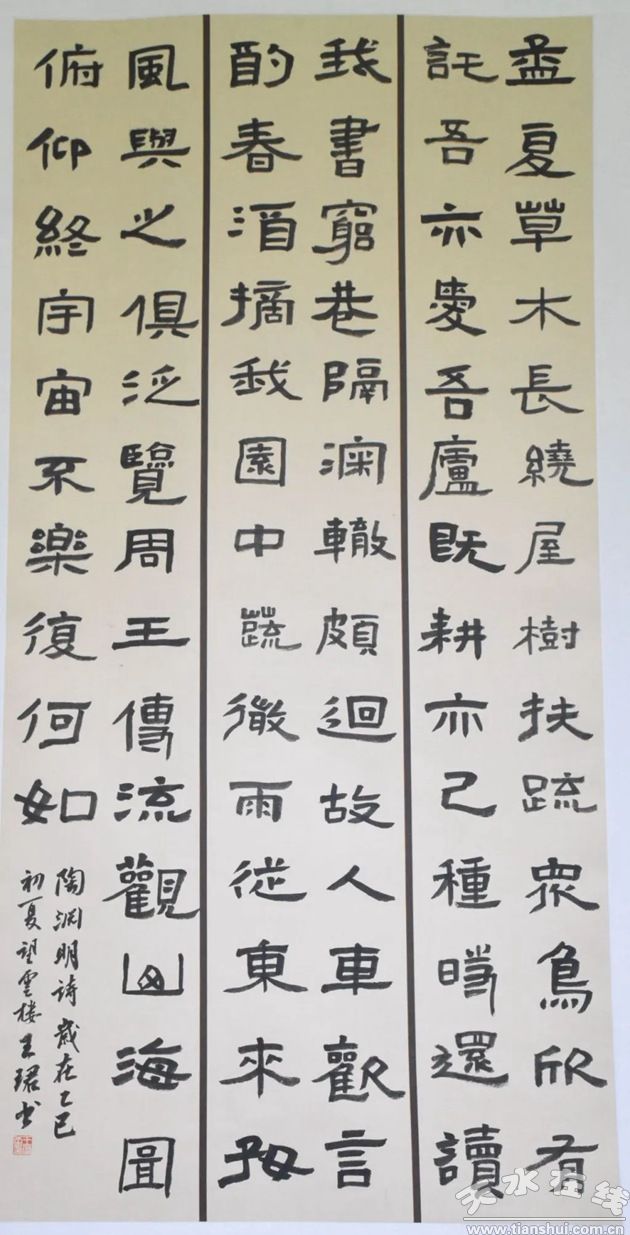 孟夏草木長繞屋樹扶疏衆鳥欣有
託吾亦愛吾廬既耕亦已種時還讀
我書窮巷隔深轍頗迴故人車歡言
酌春酒摘我園中蔬微雨從東來好
風與之俱泛覽周王傳流觀山海圖
俯仰終宇宙不樂復何如
陶渊明诗 歲在乙巳
初夏望雲楼王珺书
天水在线
www.tianshui.com.cn